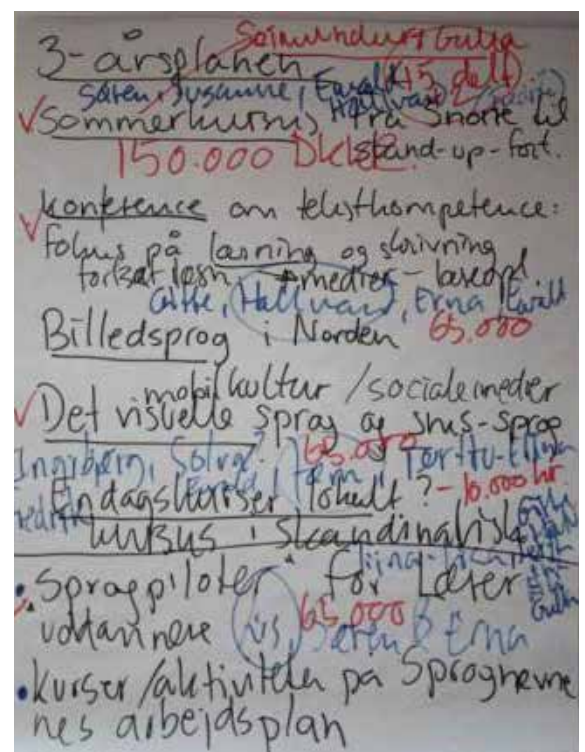 3-årsplanen
Søren, Susanne, Ewald
Hallvard
15 delt.
Sommerkursus, fra Snorre til
stand-up-fort.
150.000 DKK
konference om tekstkompetence:
fokus på læsning og skrivning
medier - læreopl.
Gitte, Hallvard, Erna, Ewald
Billedsprog i Norden 65.000
mobilkultur / sociale medier
Det visuelle sprog og sms-sprog
65.000
Ingibjörg, Solveig?
Endagskurser lokalt? - 10.000 kr.
kursus i skandinavisk
• Sprogpiloter for Lærer
uddannere 65.000
Iris, Søren & Erna
• kurser/aktiviteter på Sprognævne
nes arbejdsplan